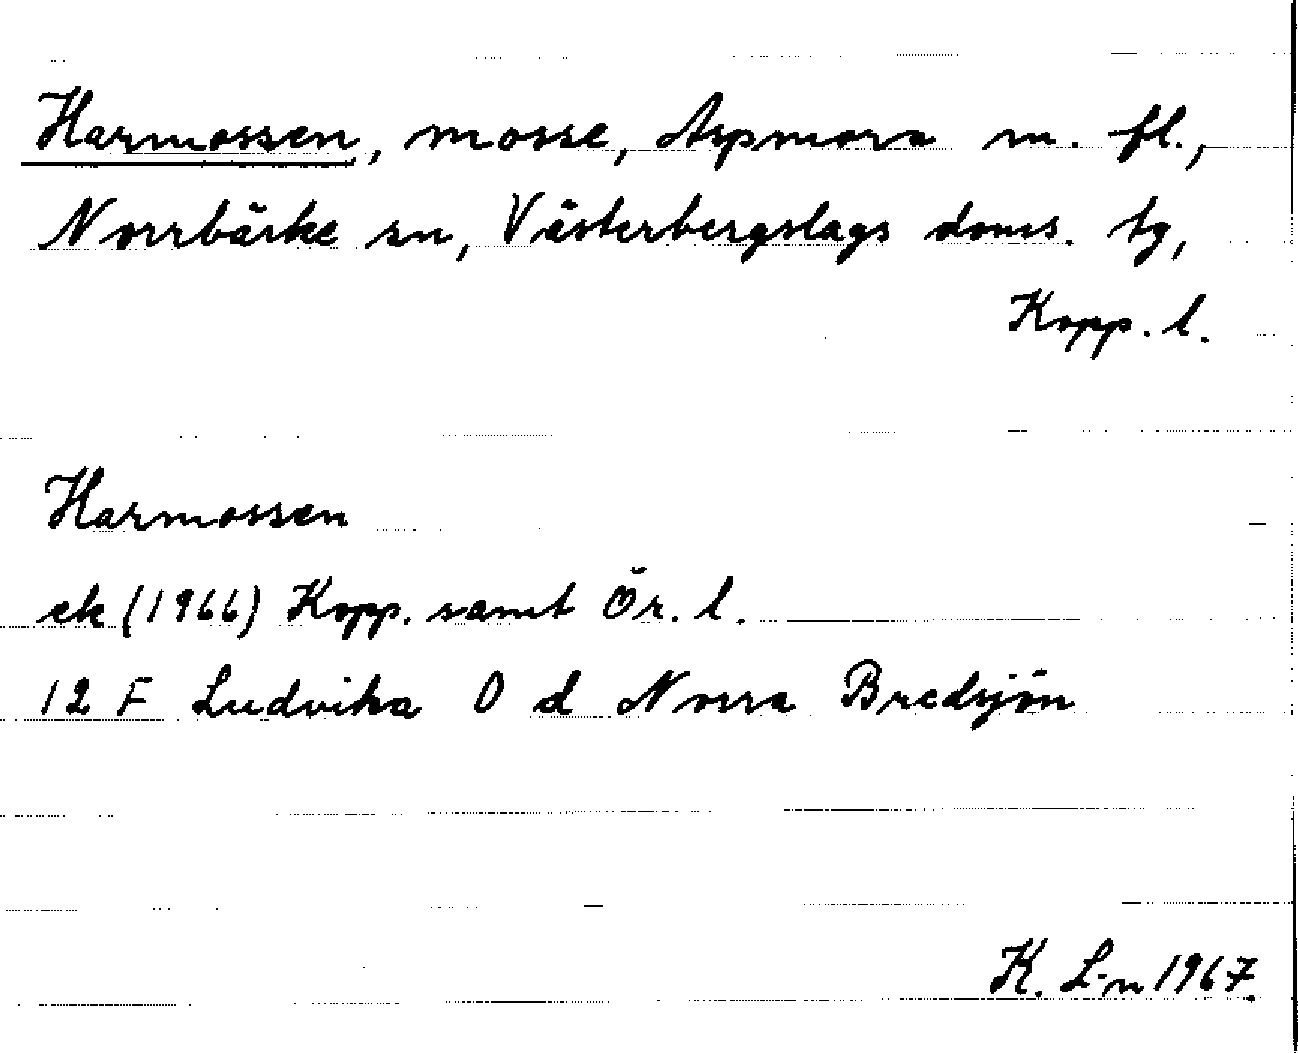 Harmossen, mosse, Aspmora m. fl.,
Norrbärke sn, Västerbergslags doms. tg,
Kopp. l.
Harmossen
ek (1966) Kopp. samt Ör. l.
12 F Ludvika 0 d Norra Bredsjön
K. L-n 1967.